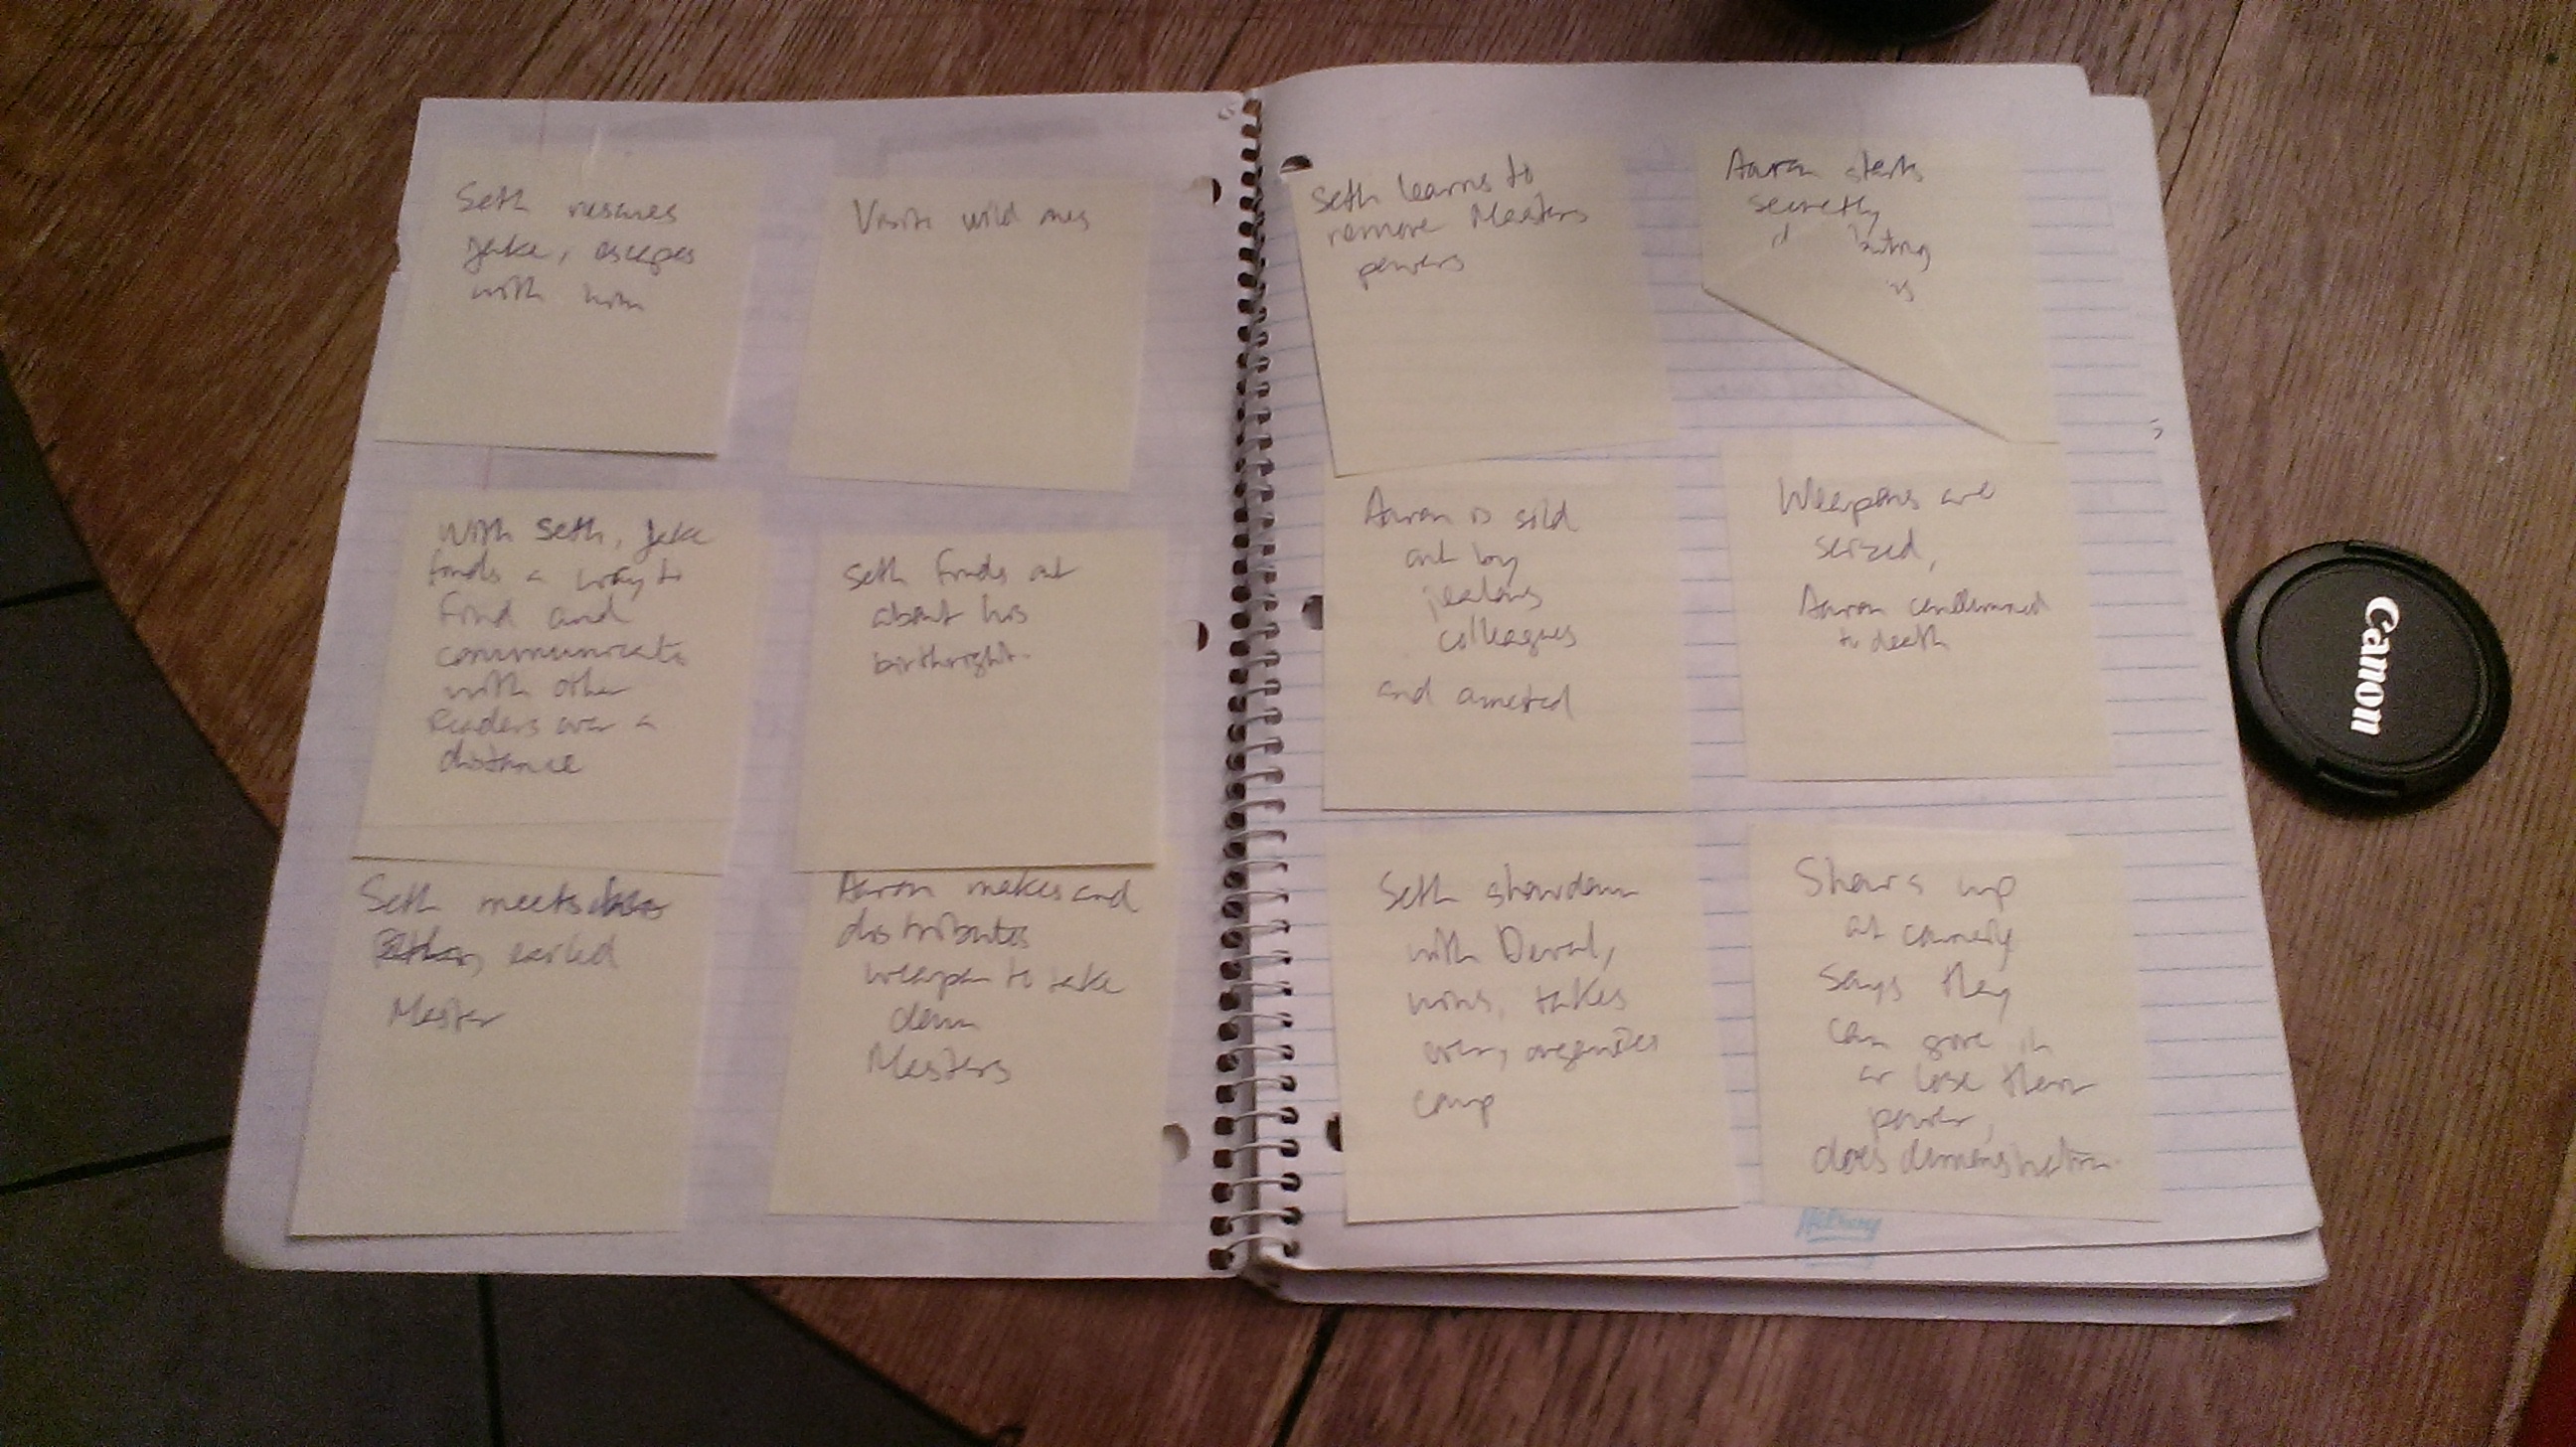 Seth rescues
Jake, escapes
with him
Visits wild ones
With Seth, Jake
finds a way to
find and
communicate
with other
Readers over a
distance
Seth finds out
about his
birthright.
Seth meets
exiled
Master
Aaron makes and
distributes
weapon to take
down
Masters
Seth learns to
remove Masters
powers
Aaron starts
secretly
Aaron is sold
out by
jealous
colleagues
and arrested
Weapons are
seized,
Aaron condemned
to death
Seth showdown
with
wins, takes
over, organizes
camp
Shows up
at
says they
can give in
or lose their
power,
does demonstration.
Canon